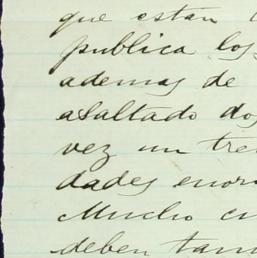 que estan
publica los
ademas de
asaltado dos
vez un tre
dades enor
Mucho
deben tam